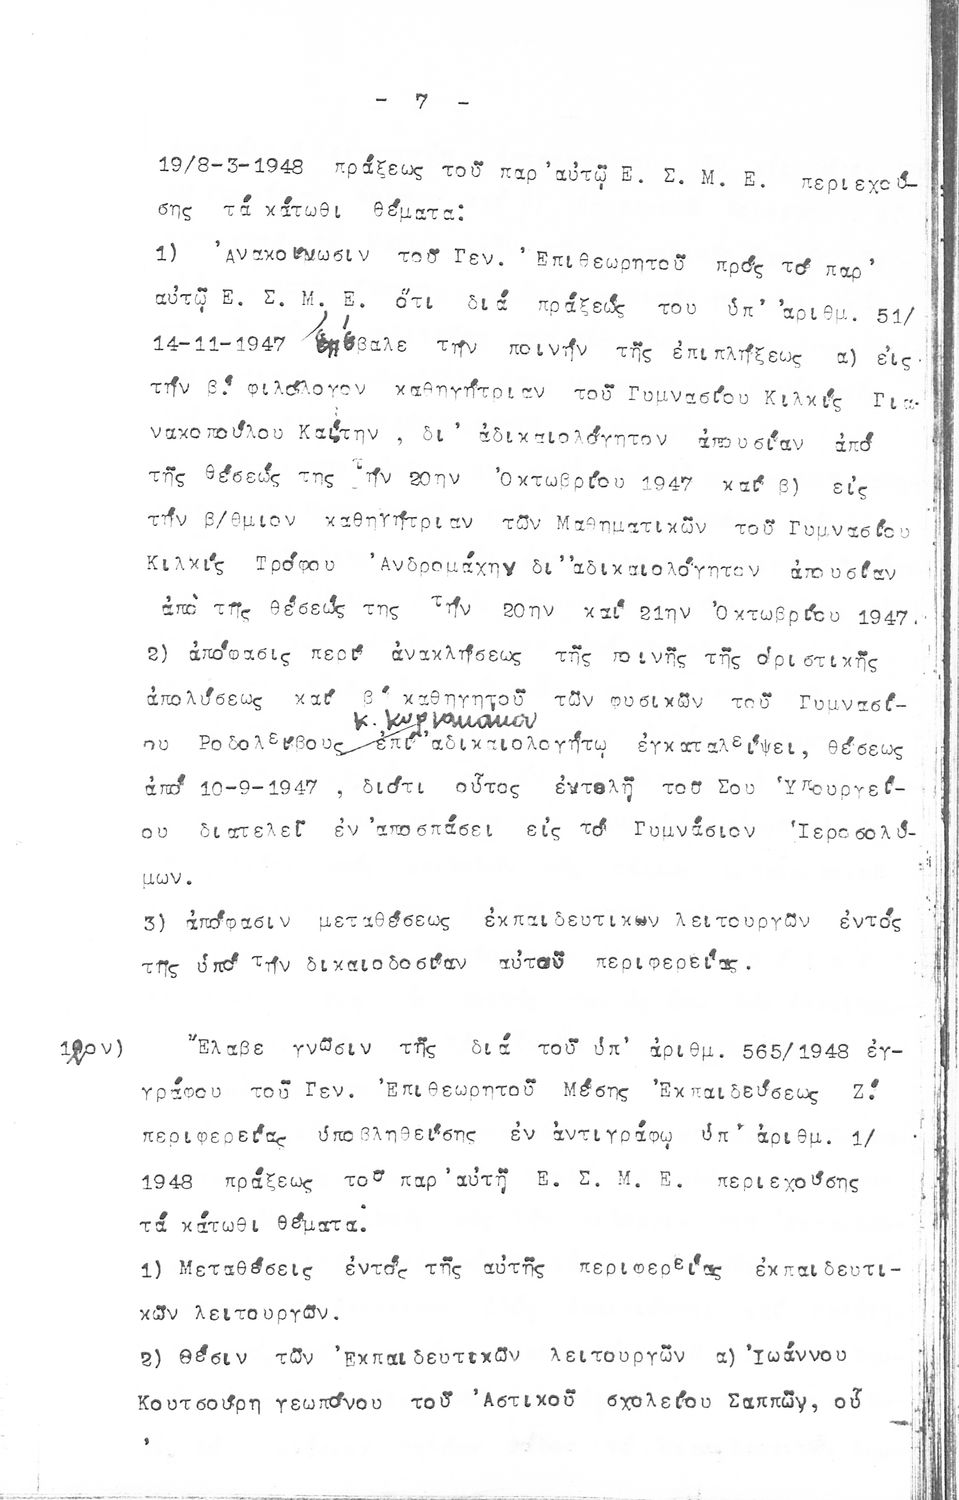 - 7 -
19/8-3-1948 πράξεως τοῦ παρ'αὐτῷ Ε. Σ. Μ. Ε. περιεχού-
σης τά κάτωθι θέματα:
1) 'Ανακοίνωσιν τοῦ Γεν. 'Επιθεωρητοῦ πρός τό παρ'
αὐτῷ Ε. Σ. Μ. Ε. ὅτι διά πράξεώς του ὑπ' ἀριθμ. 51/
14-11-1947 ἐπέβαλε τήν ποινήν τῆς ἐπιπλήξεως α) εἰς
τήν β.' φιλόλογον καθηγήτριαν τοῦ Γυμνασίου Κιλκίς Για-
νακοπούλου Καίτην , δι' ἀδικαιολόγητον ἀπουσίαν ἀπό
τῆς θέσεώς της τήν 20ην 'Οκτωβρίου 1947 καί β) εἰς
τήν β/θμιον καθηγήτριαν τῶν Μαθηματικῶν τοῦ Γυμνασίου
Κιλκίς Τρόφου 'Ανδρομάχην δι''αδικαιολόγητον ἀπουσίαν
ἀπό τῆς θέσεώς της τήν 20ην καί 21ην 'Οκτωβρίου 1947.
2) ἀπόφασις περί ἀνακλήσεως τῆς ποινῆς τῆς ὁριστικῆς
ἀπολύσεως καί β' καθηγητοῦ τῶν φυσικῶν τοῦ Γυμνασί-
κ. Κυριακάκου
ου Ροδολείβους ἐπί 'αδικαιολογήτῳ ἐγκαταλείψει, θέσεως
ἀπό 10-9-1947 , διότι οὗτος ἐντολῇ τοῦ Σου 'Υπουργεί-
ου διατελεῖ ἐν 'αποσπάσει εἰς τό Γυμνάσιον 'Ιεροσολύ-
μων.
3) ἀπόφασιν μεταθέσεως ἐκπαιδευτικων λειτουργῶν ἐντός
τῆς ὑπό τήν δικαιοδοσίαν αὐτοῦ περιφερείας.
10ον) "Ελαβε γνῶσιν τῆς διά τοῦ ὑπ' ἀριθμ. 565/1948 ἐγ-
γράφου τοῦ Γεν. 'Επιθεωρητοῦ Μέσης 'Εκπαιδεύσεως Ζ.'
περιφερείας ὑποβληθείσης ἐν ἀντιγράφῳ ὑπ' ἀριθμ. 1/
1948 πράξεως τοῦ παρ'αὐτῇ Ε. Σ. Μ. Ε. περιεχούσης
τά κάτωθι θέματα:
1) Μεταθέσεις ἐντός τῆς αὐτῆς περιφερείας ἐκπαιδευτι-
κῶν λειτουργῶν.
2) Θέσιν τῶν 'Εκπαιδευτικῶν λειτουργῶν α) 'Ιωάννου
Κουτσούρη γεωπόνου τοῦ 'Αστικοῦ σχολείου Σαππῶν, οὗ